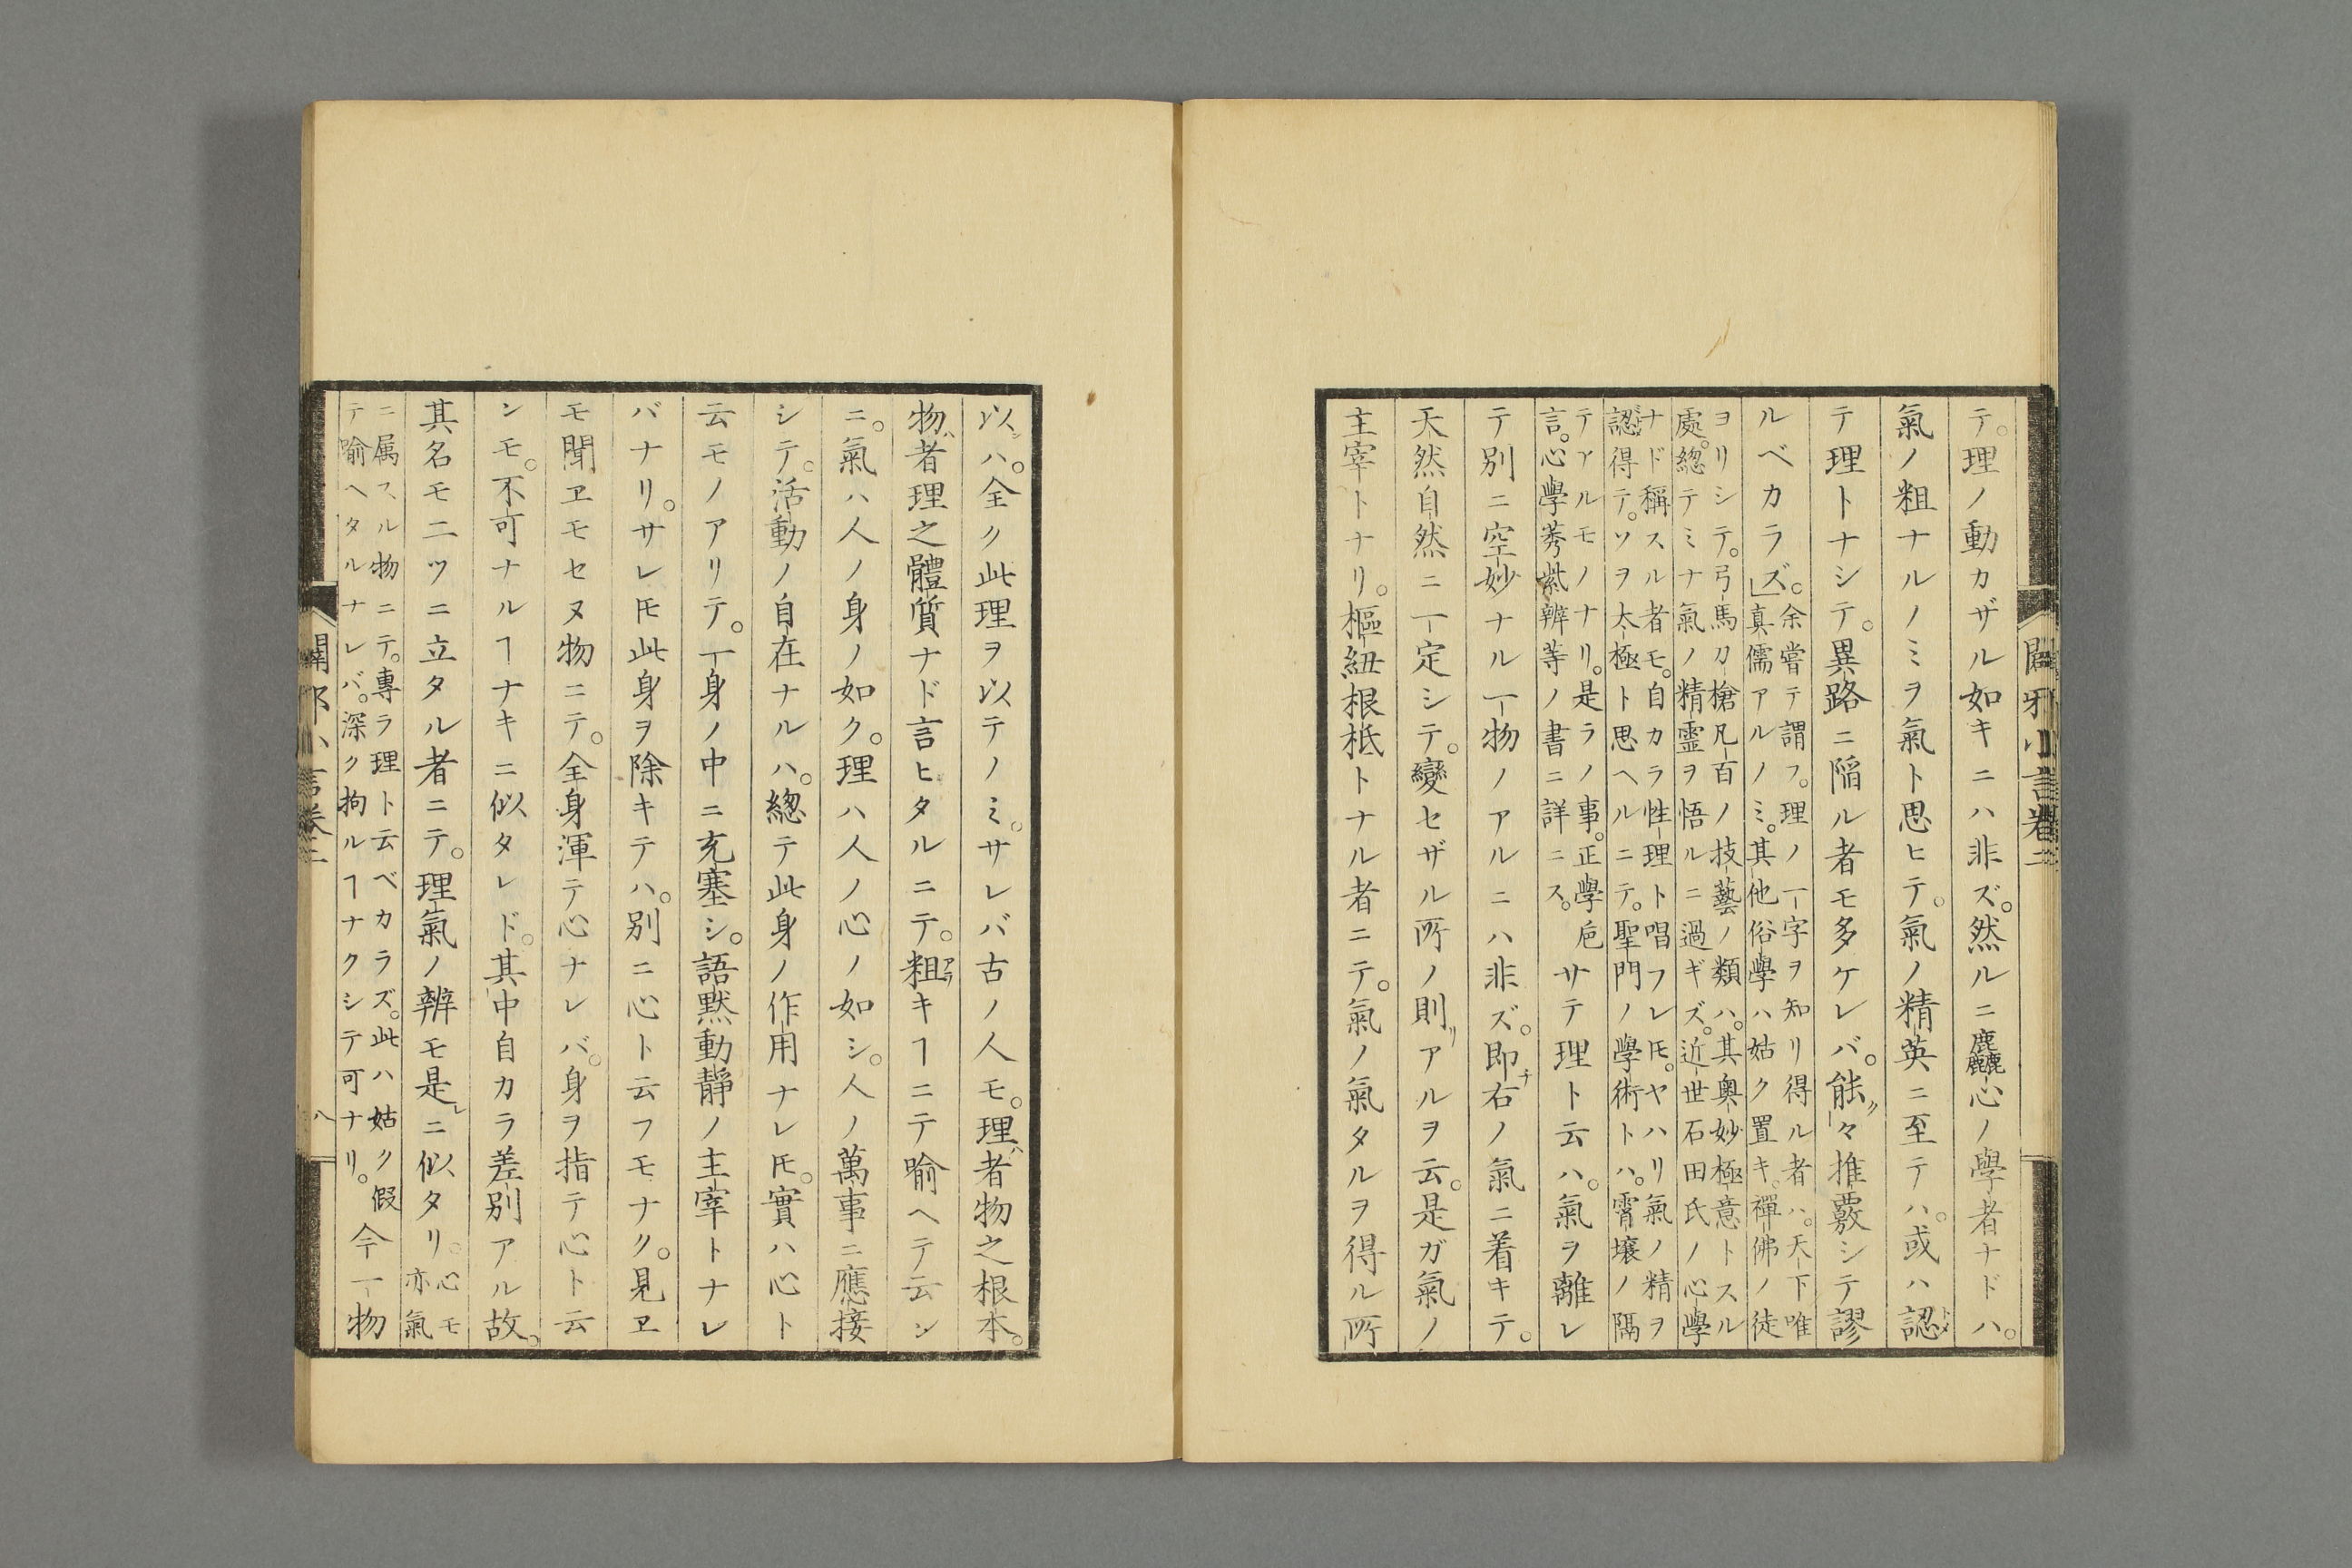 闢邪小言卷二
テ。理ノ動カザル如キニハ非ズ。然ルニ麤心ノ學者ナドハ。
氣ノ粗ナルノミヲ氣ト思ヒテ。氣ノ精英ニ至テハ。或ハ認トメ
テ理トナシテ。異路ニ陷ル者モ多ケレバ。能ク々推覈シテ謬
ルベカラズ。」余嘗テ謂フ。理ノ一字ヲ知リ得ル者ハ。天下唯
真儒アルノミ。其他俗學ハ姑ク置キ。禪佛ノ徒
ヨリシテ。弓馬刀槍凡百ノ技藝ノ類ハ。其奧妙極意トスル
處。總テミナ氣ノ精霊ヲ悟ルニ過ギズ。近世石田氏ノ心學
ナド稱スル者モ。自カラ性理ト唱フレ𪜈。ヤハリ氣ノ精ヲ
認得テ。ソヲ太極ト思ヘルニテ。聖門ノ學術トハ。霄壤ノ隔
テアルモノナリ。是ラノ事。正學巵
言。心學莠紫辨等ノ書ニ詳ニス。サテ理ト云ハ。氣ヲ離レ
テ別ニ空妙ナル一物ノアルニハ非ズ。即チ右ノ氣ニ着キテ。
天然自然ニ一定シテ。變セザル所ノ則リアルヲ云。是ガ氣ノ
主宰トナリ。樞紐根柢トナル者ニテ。氣ノ氣タルヲ得ル所
以ンハ。全ク此理ヲ以テノミ。サレバ古ノ人モ。理ハ者物之根本。
物ハ者理之體質ナド言ヒタルニテ。粗アラキヿニテ喻ヘテ云ン
ニ。氣ハ人ノ身ノ如ク。理ハ人ノ心ノ如シ。人ノ萬事ニ應接
シテ。活動ノ自在ナルハ。總テ此身ノ作用ナレ𪜈。實ハ心ト
云モノアリテ。一身ノ中ニ充塞シ。語默動靜ノ主宰トナレ
バナリ。サレ𪜈此身ヲ除キテハ。別ニ心ト云フモナク。見ヱ
モ聞ヱモセヌ物ニテ。全身渾テ心ナレバ。身ヲ指テ心ト云
ンモ。不可ナルヿナキニ似タレド。其中自カラ差別アル故。
其名モ二ツニ立タル者ニテ。理氣ノ辨モ是レニ似タリ。心モ
亦氣
ニ属スル物ニテ。專ラ理ト云ベカラズ。此ハ姑ク假
テ喻ヘタルナレバ。深ク拘ルヿナクシテ可ナリ。今一物
闢邪小言卷二
八